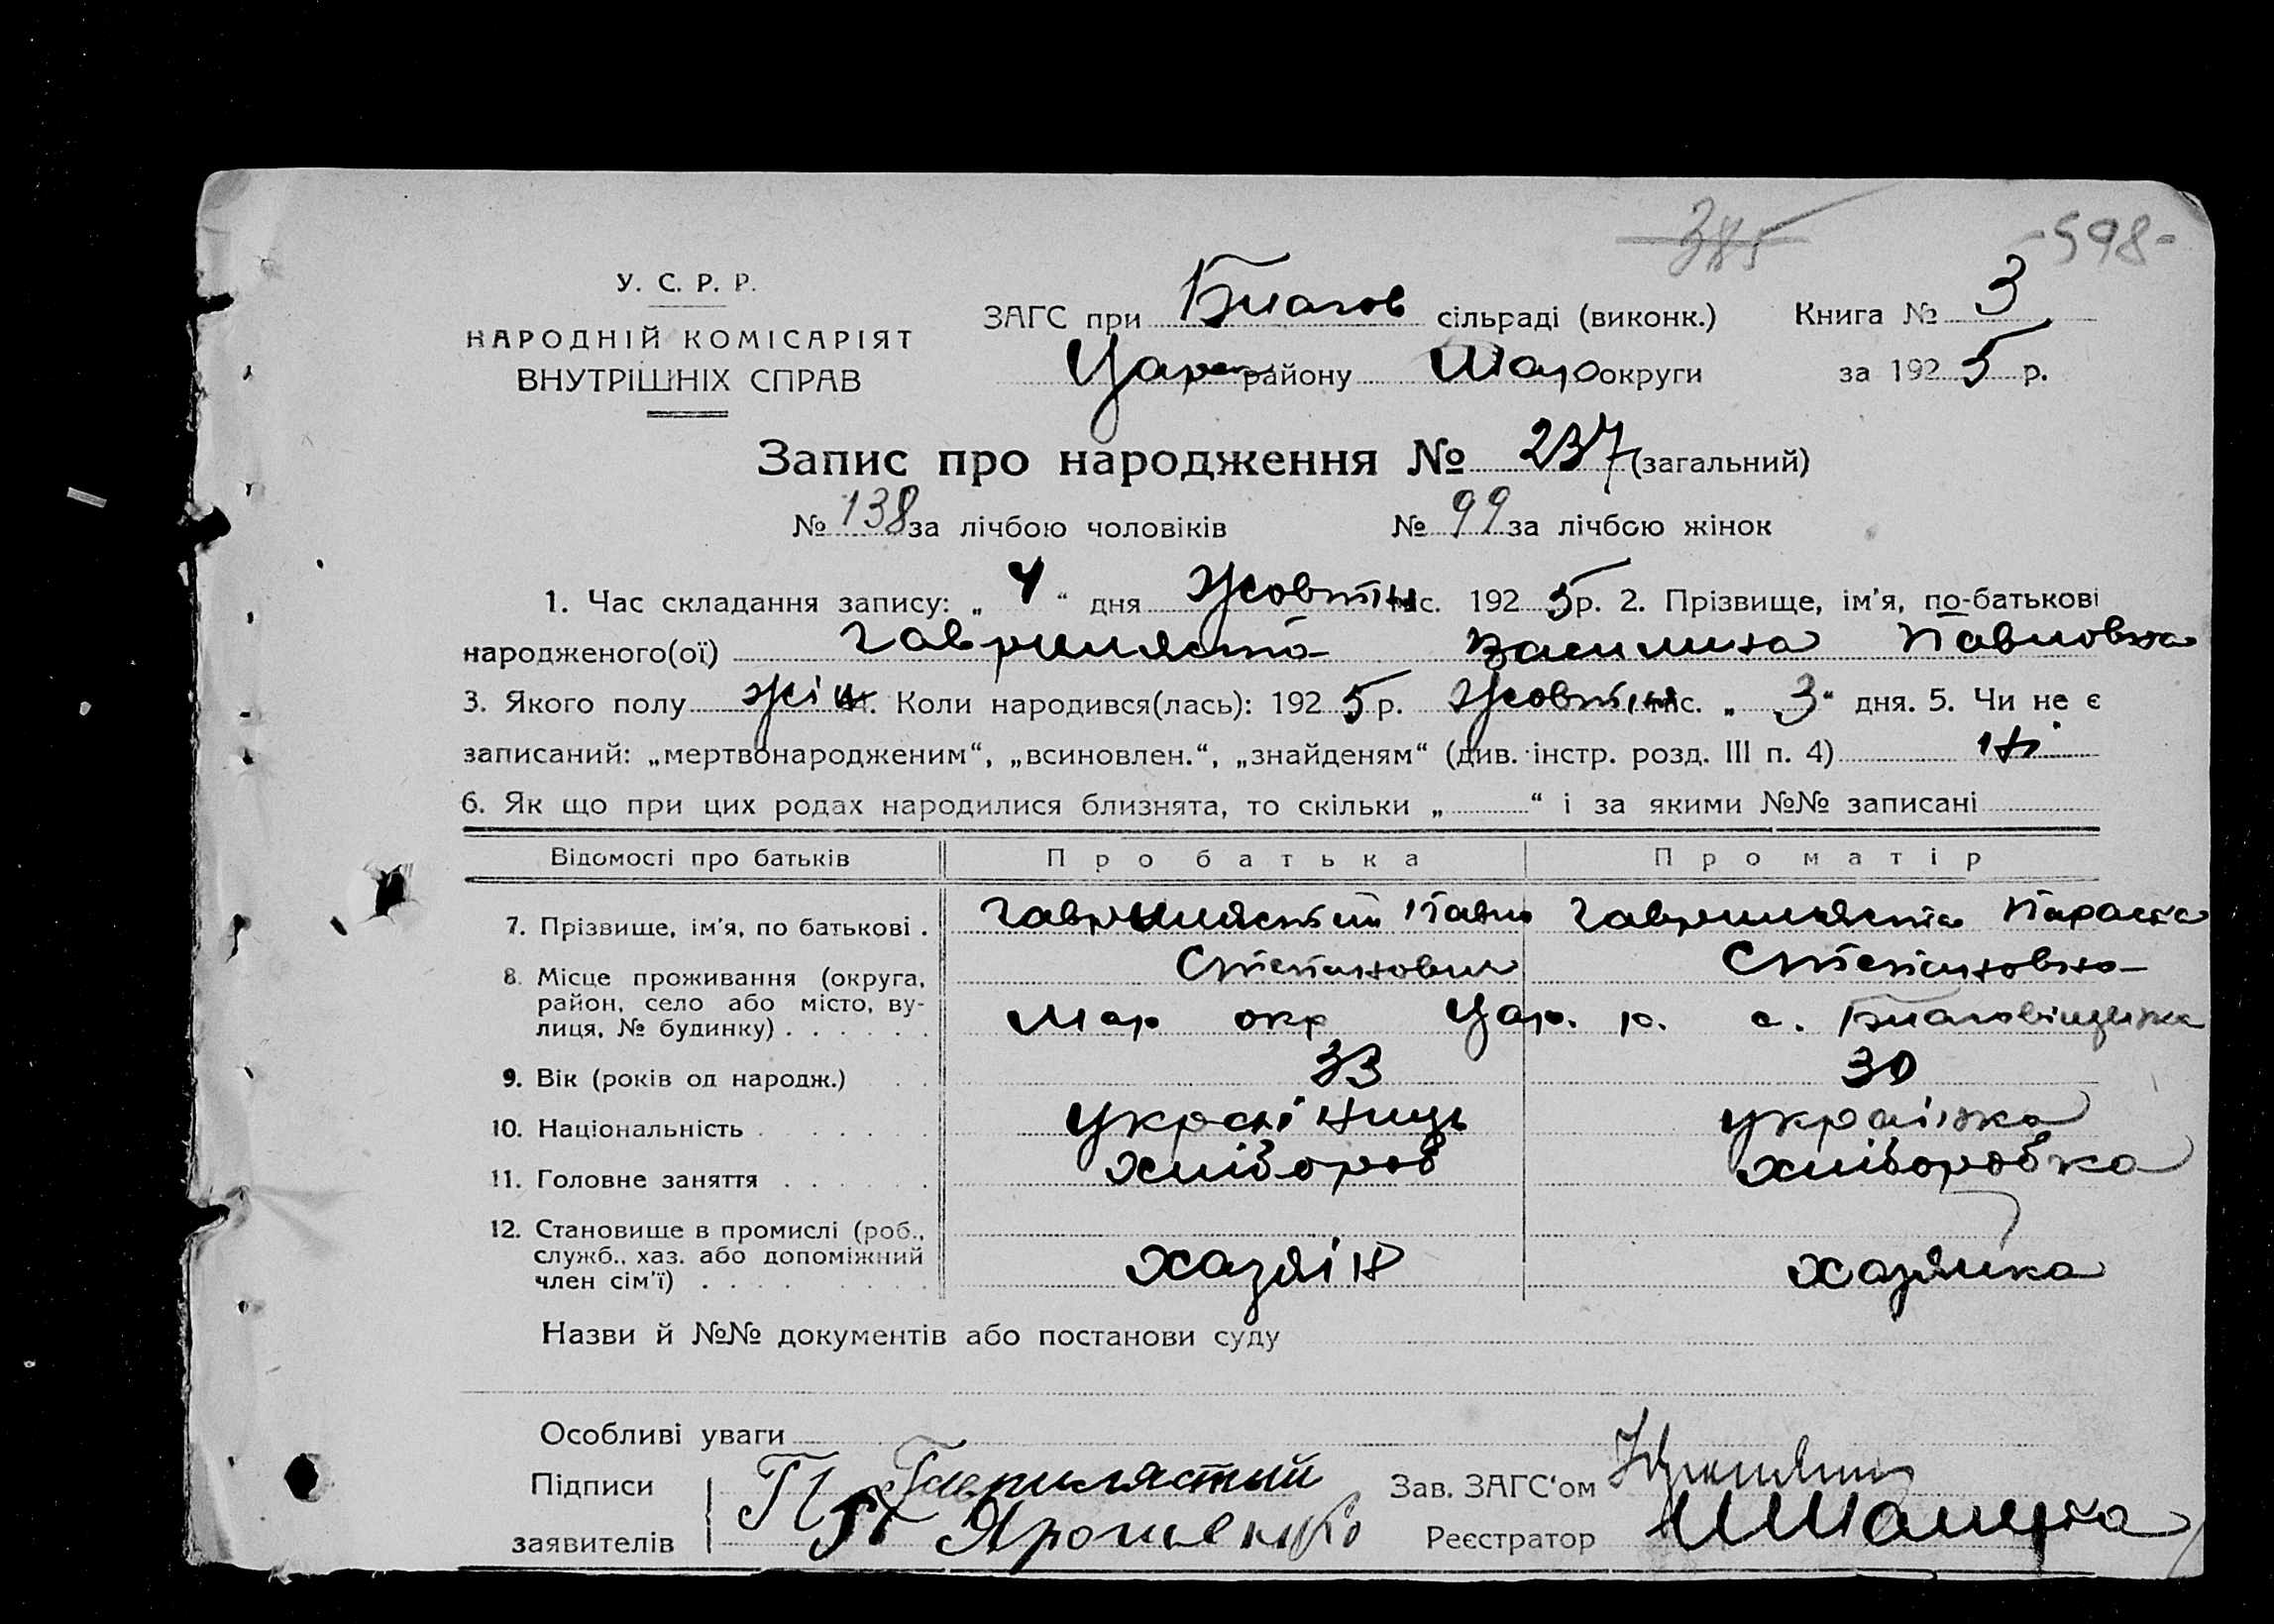 385
-598-
У. С. Р. Р.
НАРОДНІЙ КОМІСАРІЯТ
ВНУТРІШНІХ СПРАВ
ЗАГС при Благов сільраді (виконк.) Книга № 3
Цар району Мар округи за 1925 р.
Запис про народження № 237 (загальний)
№ 138 за лічбою чоловіків № 99 за лічбою жінок
1. Час складання запису: „ 4 “ дня Жовтня міс. 1925 р. 2. Прізвище, ім'я, по-батькові
народженого(ої) Гавриляста Василина Павловна
3. Якого полу жін. Коли народився(лась): 1925 р. Жовтня міс. „ 3 “ дня. 5. Чи не є
записаний: „мертвонародженим“, „всиновлен.“, „знайденям“ (див. інстр. розд. III п. 4) ні
6. Як що при цих родах народилися близнята, то скільки „ “ і за якими №№ записані
Відомості про батьків Про батька Про матір
7. Прізвище, ім'я, по батькові . Гаврилястий Павло Гаврилята Параска
Степанович Степановна
8. Місце проживання (округа,
район, село або місто, вулиця, № будинку) . . . . . . Мар окр Цар. р. с. Благовіщенка
9. Вік (років од народж.) 33 30
10. Національність українець українка
11. Головне заняття хлібороб хліборобка
12. Становище в промислі (роб.,
служб., хаз. або допоміжний
член сім'ї) хазяїн хазяйка
Назви й №№ документів або постанови суду
Особливі уваги
Підписи П Гаврилястый Зав. ЗАГС'ом
заявителів Ярошенко Реєстратор